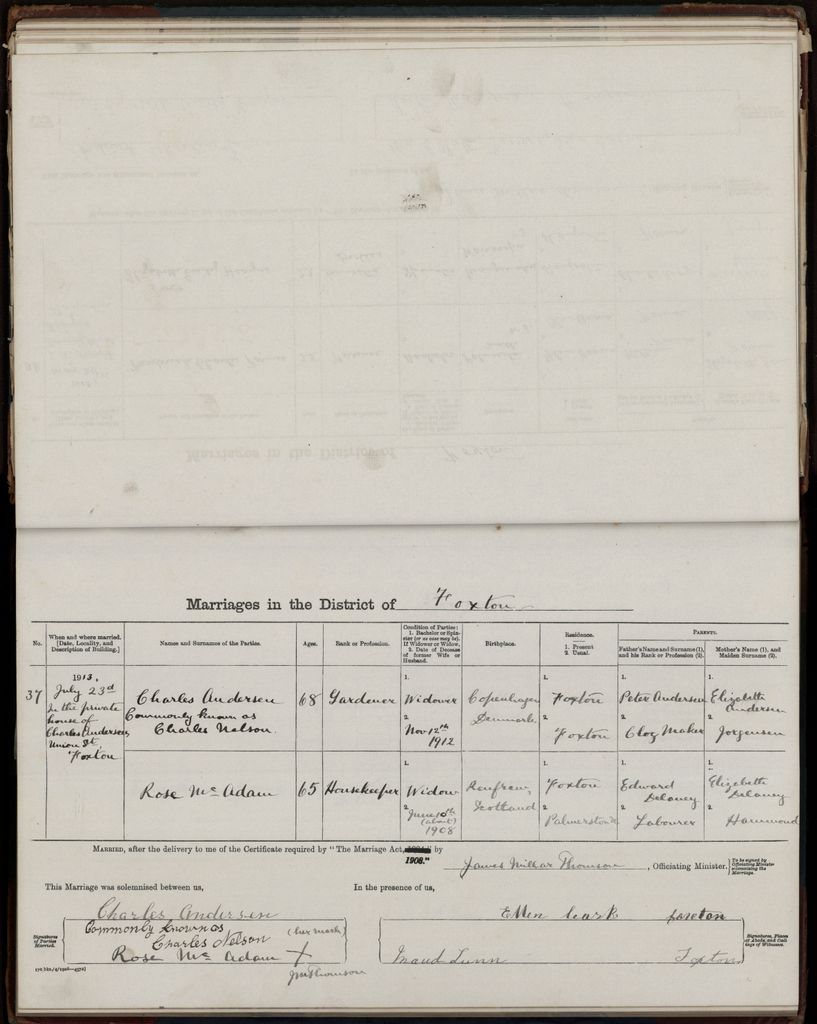 Marriages in the District of Foxton
No.
When and where married. [Date, Locality, and Description of Building.]
Names and Surnames of the Parties.
Ages.
Rank or Profession.
Condition of Parties: 1. Bachelor or Spinster (or as case may be). If Widower or Widow, 2. Date of Decease of former Wife or Husband.
Birthplace.
Residence. 1. Present 2. Usual.
PARENTS.
Father's Name and Surname (1), and his Rank or Profession (2).
Mother's Name (1), and Maiden Surname (2).
37
1913.
July 23rd
In the private
house of
Charles Andersen
Union St.
Foxton
Charles Andersen
Commonly known as
Charles Nelson.
68
Gardener
1.
Widower
2.
Nov 12th
1912
Copenhagen
Denmark
1.
Foxton
2.
Foxton
1.
Peter Andersen
2.
Clog Maker
1.
Elizabeth
Andersen
2.
Jorgensen
Rose Mc Adam
65
Housekeeper
1.
Widow
2.
June 10th
(about)
1908
Renfrew
Scotland
1.
Foxton
2.
Palmerston N.
1.
Edward
Delaney
2.
Labourer
1.
Elizabeth
Delaney
2.
Hammond
MARRIED, after the delivery to me of the Certificate required by "The Marriage Act, 1908." by
James Millar Thomson, Officiating Minister. [To be signed by Officiating Minister solemnising the Marriage.]
This Marriage was solemnised between us,
In the presence of us,
Signatures of Parties Married.
Charles Andersen
Commonly known as
Charles Nelson
(her mark)
Rose Mc Adam X
JMThomson
Ellen Foxton
Maud Lunn Foxton
Signatures, Places of Abode, and Callings of Witnesses.